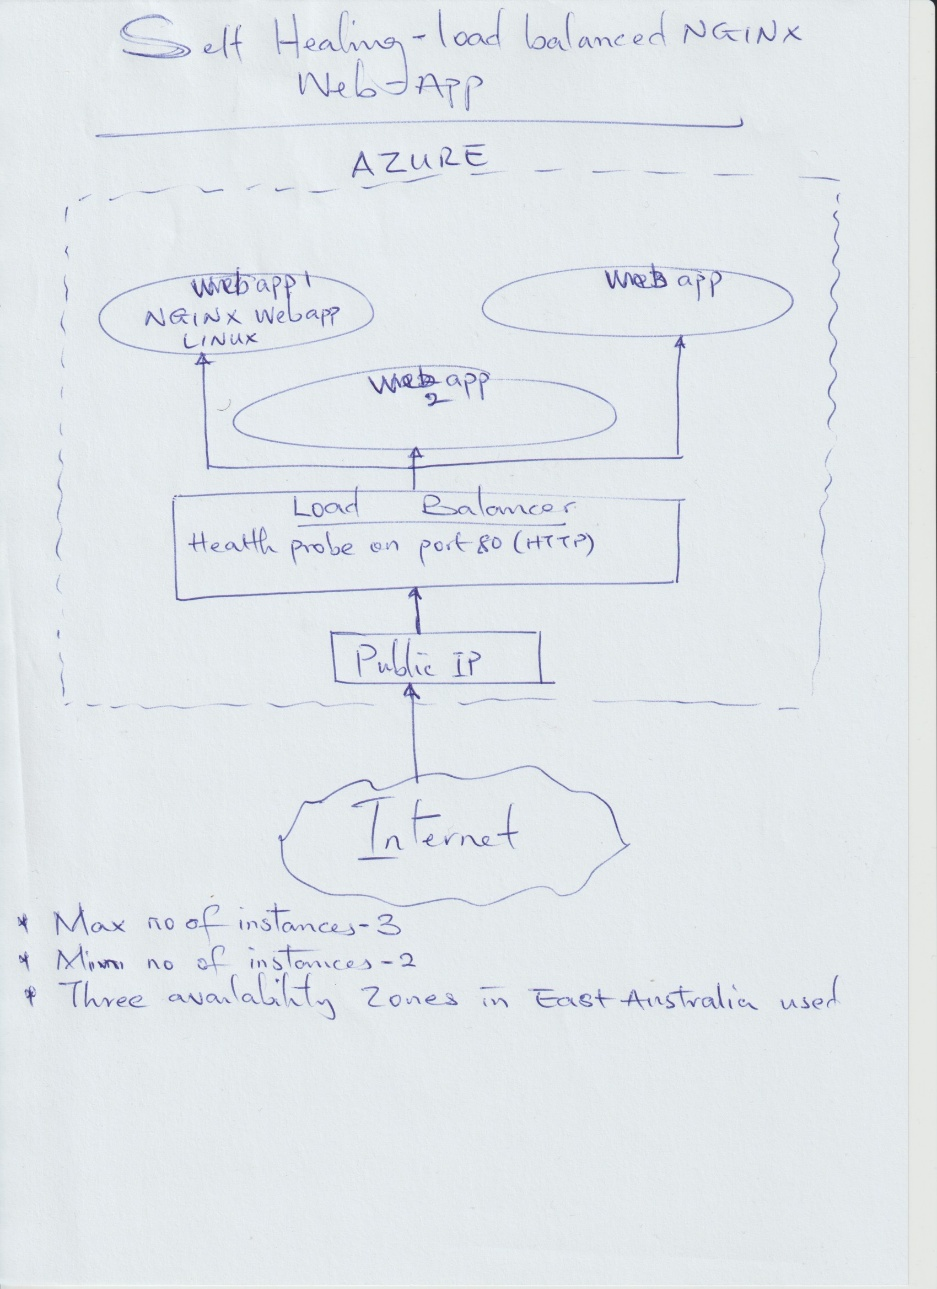 Self Healing-load balanced NGINX
Web-App
AZURE
Web app 1
NGINX Webapp
LINUX
Web app
Web app
2
Load Balancer
Health probe on port 80 (HTTP)
Public IP
Internet
* Max no of instances-3
* Min no of instances-2
* Three availability Zones in East Australia used